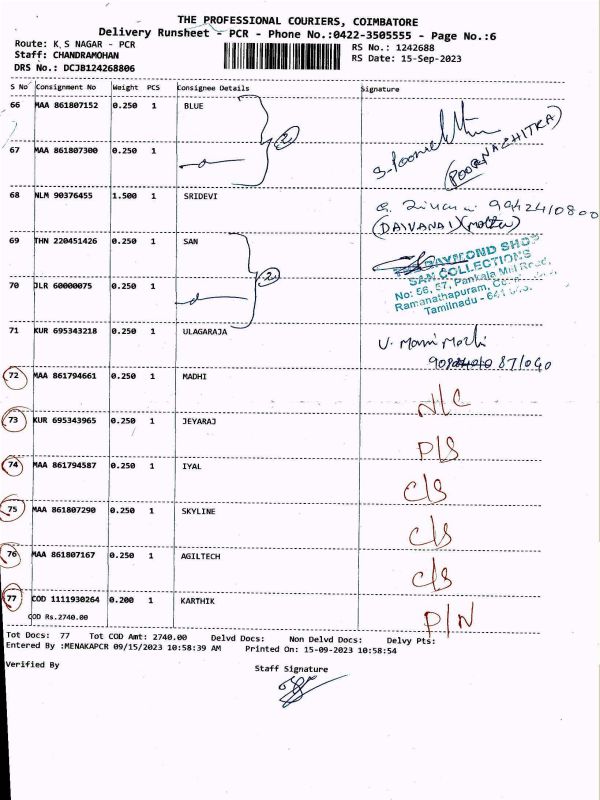 THE PROFESSIONAL COURIERS, COIMBATORE
Delivery Runsheet - PCR - Phone No.:0422-3505555 - Page No.:6
Route: K,S NAGAR - PCR
RS No.: 1242688
Staff: CHANDRAMOHAN
RS Date: 15-Sep-2023
DRS No.: DCJB124268806
S No Consignment No Weight PCS Consignee Details Signature
66 MAA 861807152 0.250 1 BLUE
(POORNACHITRA)
67 MAA 861807300 0.250 1
68 NLM 90376455 1.500 1 SRIDEVI
9942410800
(DAIVANAI) (mother)
69 THN 220451426 0.250 1 SAN
RAYMOND SHOP
SAN COLLECTIONS
No: 56, 57, Pankaja Mill Road,
Ramanathapuram,
Tamilnadu - 641
70 JLR 60000075 0.250 1
71 KUR 695343218 0.250 1 ULAGARAJA
72 MAA 861794661 0.250 1 MADHI
N/C
73 KUR 695343965 0.250 1 JEYARAJ
P/S
74 MAA 861794587 0.250 1 IYAL
C/S
75 MAA 861807290 0.250 1 SKYLINE
C/S
76 MAA 861807167 0.250 1 AGILTECH
C/S
77 COD 1111930264 0.200 1 KARTHIK
COD Rs.2740.00
P/N
Tot Docs: 77 Tot COD Amt: 2740.00 Delvd Docs: Non Delvd Docs: Delvy Pts:
Entered By :MENAKAPCR 09/15/2023 10:58:39 AM Printed On: 15-09-2023 10:58:54
Verified By
Staff Signature